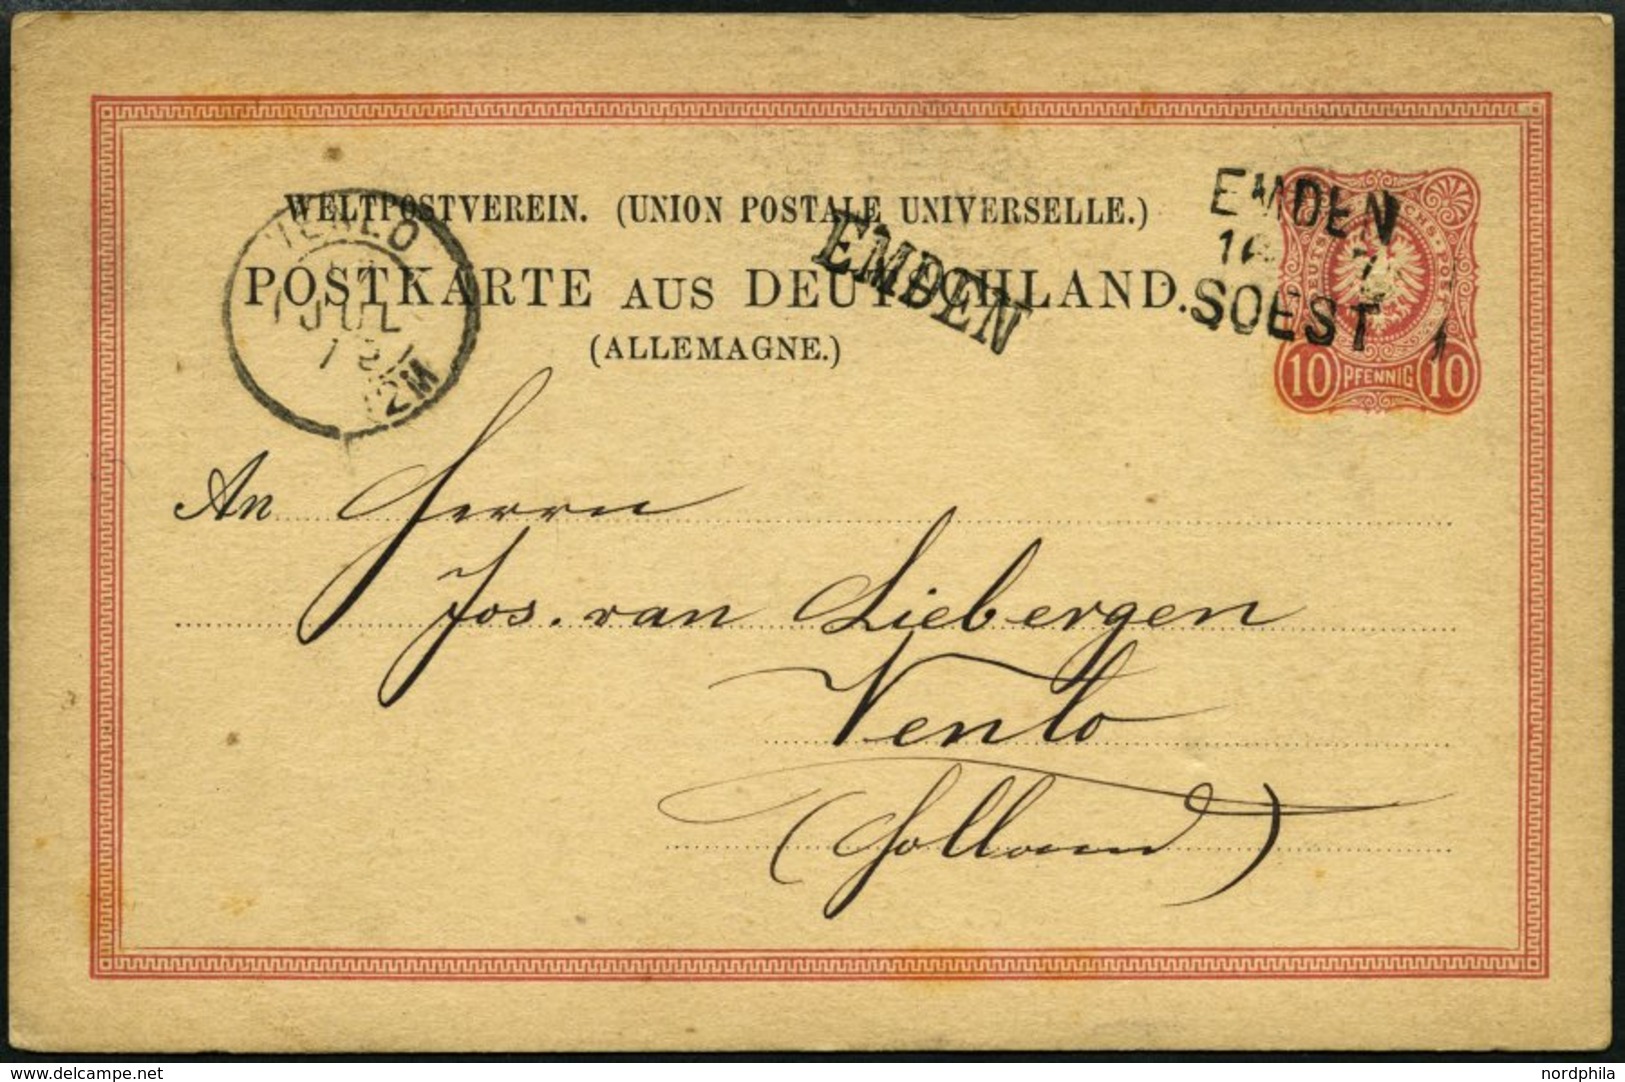 WELTPOSTVEREIN. (UNION POSTALE UNIVERSELLE.)
POSTKARTE AUS DEUTSCHLAND.
(ALLEMAGNE.)
EMDEN
EMDEN
SOEST
10 PFENNIG 10
VENLO
JUL
12M
An Herrn
Jos. van Liebergen
Venlo
(Holland)
www.delcampe.net
nordphila